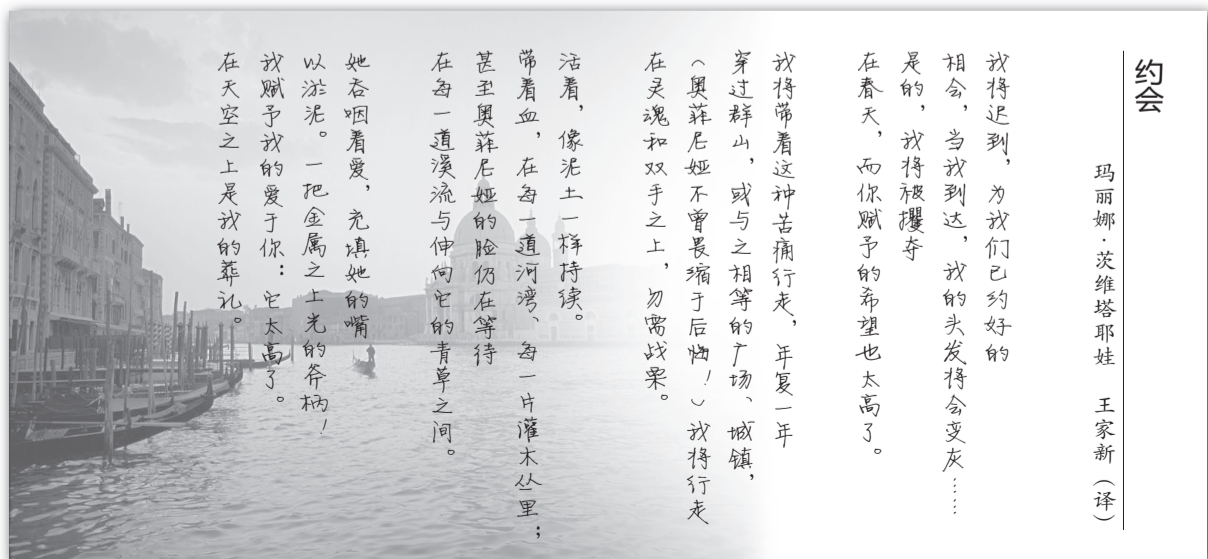 约会
玛丽娜·茨维塔耶娃 王家新（译）
我将迟到，为我们已约好的
相会，当我到达，我的头发将会变灰……
是的，我将被攫夺
在春天，而你赋予的希望也太高了。
我将带着这种苦痛行走，年复一年
穿过群山，或与之相等的广场、城镇，
（奥菲尼娅不曾畏缩于后悔！）我将行走
在灵魂和双手之上，勿需战栗。
活着，像泥土一样持续。
带着血，在每一道河湾、每一片灌木丛里；
甚至奥菲尼娅的脸仍在等待
在每一道溪流与伸向它的青草之间。
她吞咽着爱，充填她的嘴
以淤泥。一把金属之上光的斧柄！
我赋予我的爱于你：它太高了。
在天空之上是我的葬礼。